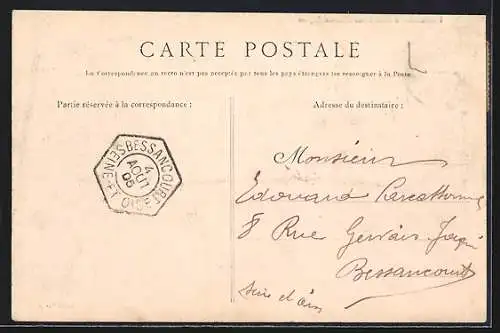 CARTE POSTALE
La Correspondance au recto n'est pas acceptée par tous les pays étrangers (se renseigner à la Poste)
Partie réservée à la correspondance :
Adresse du destinataire :
BESSANCOURT
SEINE-ET-OISE
4
AOUT
06
Monsieur
Edouard
8 Rue Gervais
Bessancourt